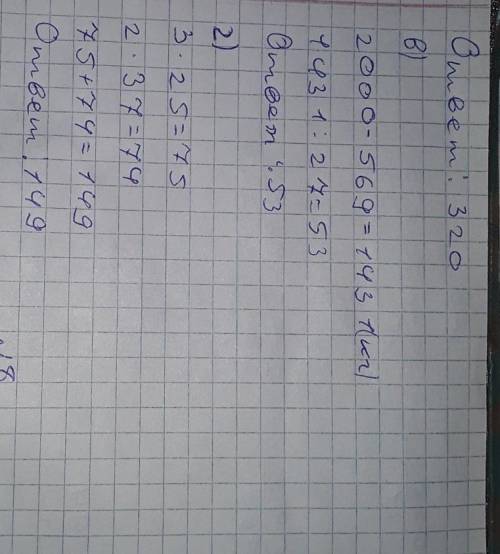 Ответ: 320
в)
2000-569=1431(кг)
1431:27=53
Ответ:53
г)
3·25=75
2·37=74
75+74=149
Ответ:149